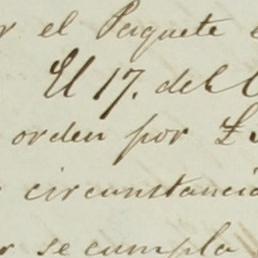 r el Paquete
El 17. del
orden por £
circunstancia
se cumpla